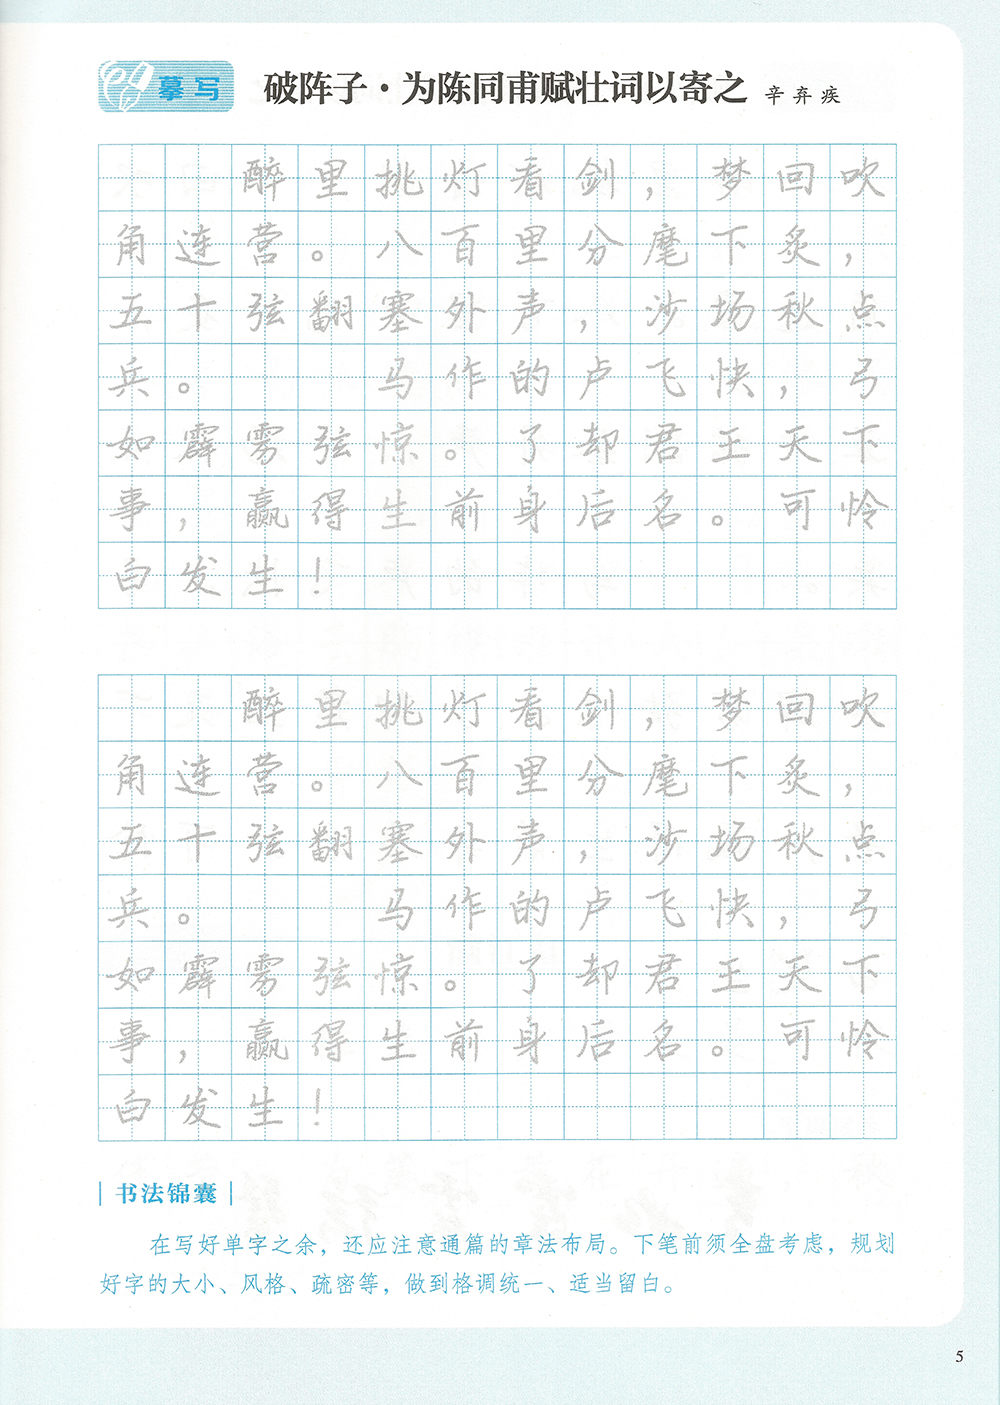 摹写
破阵子·为陈同甫赋壮词以寄之 辛弃疾
醉里挑灯看剑，梦回吹
角连营。八百里分麾下炙，
五十弦翻塞外声，沙场秋点
兵。 马作的卢飞快，弓
如霹雳弦惊。了却君王天下
事，赢得生前身后名。可怜
白发生！
醉里挑灯看剑，梦回吹
角连营。八百里分麾下炙，
五十弦翻塞外声，沙场秋点
兵。 马作的卢飞快，弓
如霹雳弦惊。了却君王天下
事，赢得生前身后名。可怜
白发生！
书法锦囊
在写好单字之余，还应注意通篇的章法布局。下笔前须全盘考虑，规划
好字的大小、风格、疏密等，做到格调统一、适当留白。
5